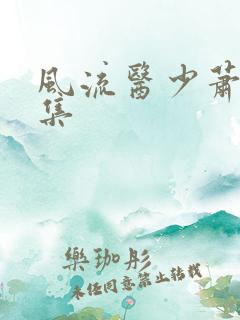 風流醫少蕭
集
樂珈彤
未經同意禁止轉載